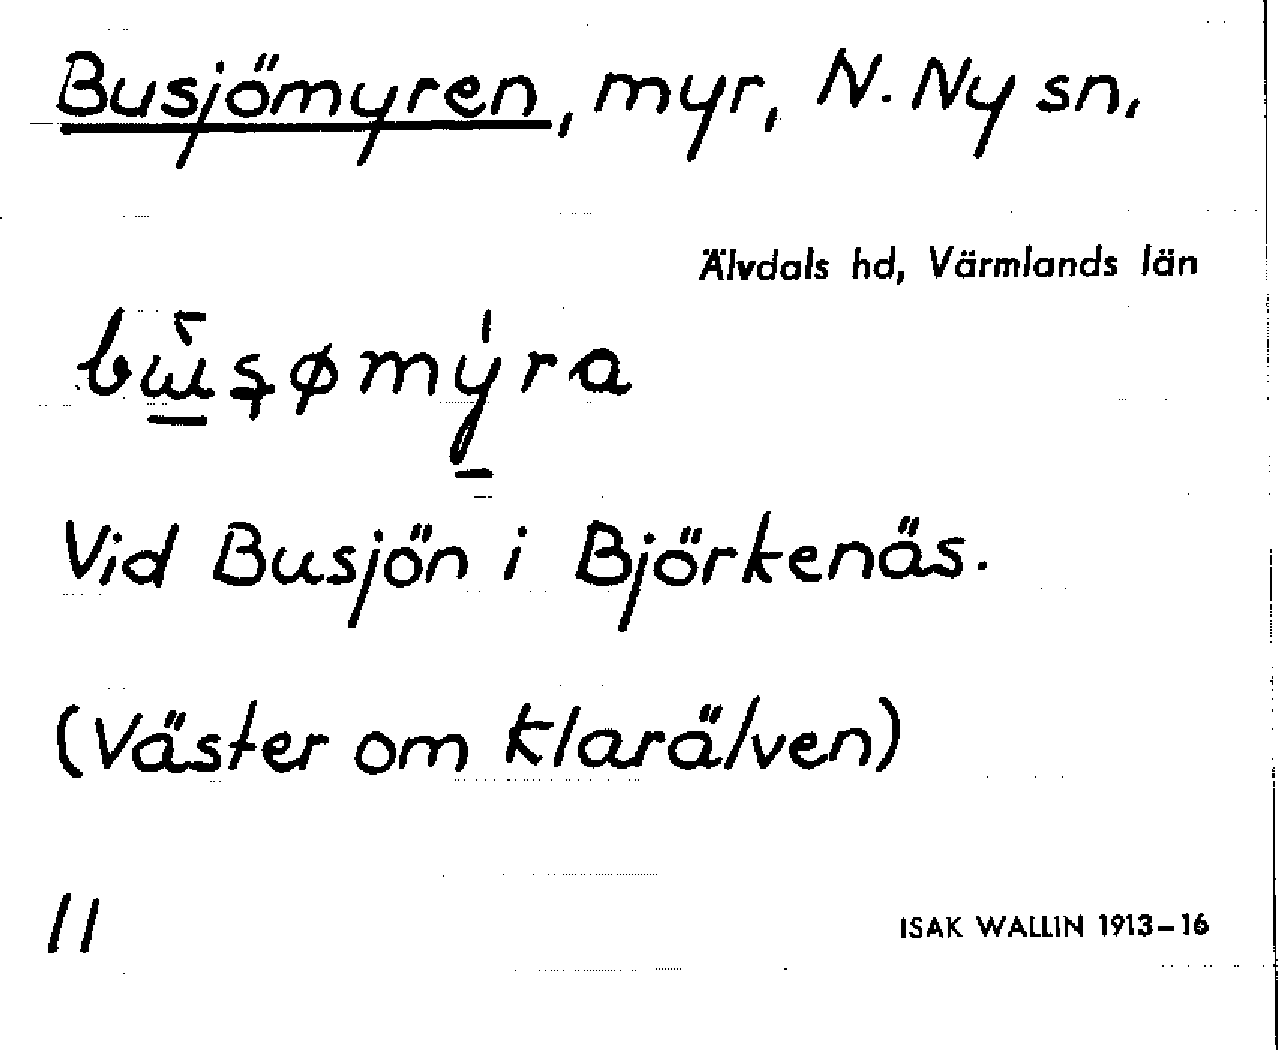 Busjömyren, myr, N. Ny sn,
Älvdals hd, Värmlands län
bùsømýra
Vid Busjön i Björkenäs.
(Väster om Klarälven)
11
ISAK WALLIN 1913–16